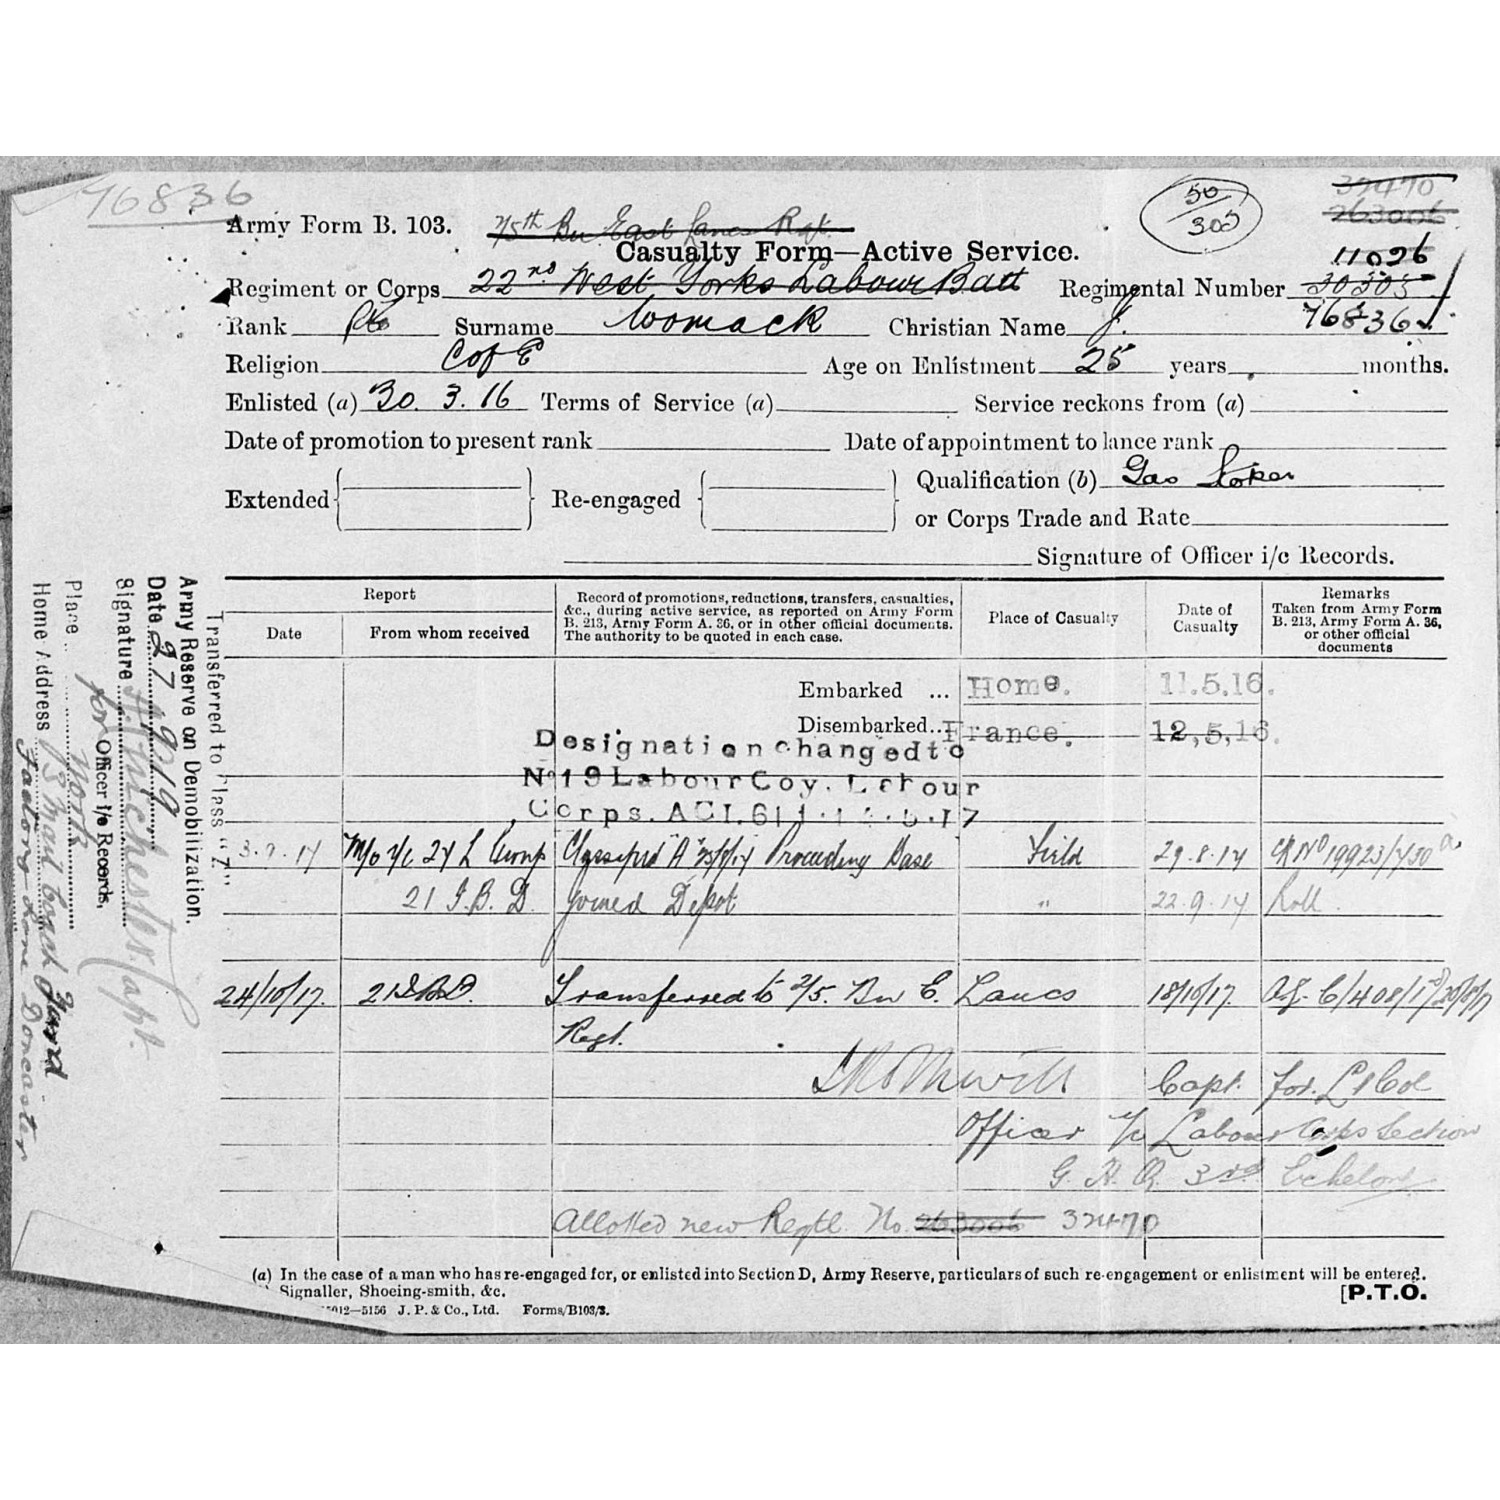 76836
50
305
32470
263006
Army Form B. 103.
2/5th Bn East Lancs Rgt.
Casualty Form—Active Service.
11026
Regiment or Corps 22nd West Yorks Labour Batt Regimental Number 30305
Rank Pte Surname Womack Christian Name J. 76836
Religion C of E Age on Enlistment 25 years months.
Enlisted (a) 30.3.16 Terms of Service (a) Service reckons from (a)
Date of promotion to present rank Date of appointment to lance rank
Extended Re-engaged Qualification (b) Gas Stoker
or Corps Trade and Rate
Signature of Officer i/c Records.
Report
Date From whom received
Record of promotions, reductions, transfers, casualties, &c., during active service, as reported on Army Form B. 213, Army Form A. 36, or in other official documents. The authority to be quoted in each case.
Place of Casualty
Date of Casualty
Remarks
Taken from Army Form B. 213, Army Form A. 36, or other official documents
Embarked ... Home. 11.5.16.
Disembarked... France. 12,5,16.
Designation changed to
No 19 Labour Coy. Labour
Corps. ACI. 611
3.9.17 24 L Group Classified "A" Proceeding Base Field 29.8.17
21 I.B.D. Joined Depot " 22.9.17 Roll.
24/10/17. 21 I.B.D. Transferred to 2/5. Bn E. Lancs 18/10/17.
Regt.
Capt. for. Lt Col
Officer i/c Labour Corps Section
G.H.Q. 3rd Echelon
Allotted new Regtl. No. 263006 32470
(a) In the case of a man who has re-engaged for, or enlisted into Section D, Army Reserve, particulars of such re-engagement or enlistment will be entered.
Signaller, Shoeing-smith, &c.
[P.T.O.
5156 J. P. & Co., Ltd. Forms/B103/3.
Transferred to Class "Z"
Army Reserve on Demobilization.
Date 27.2.19
Signature Capt.
for Officer i/c Records,
Place York
Home Address Yard
Lane Doncaster